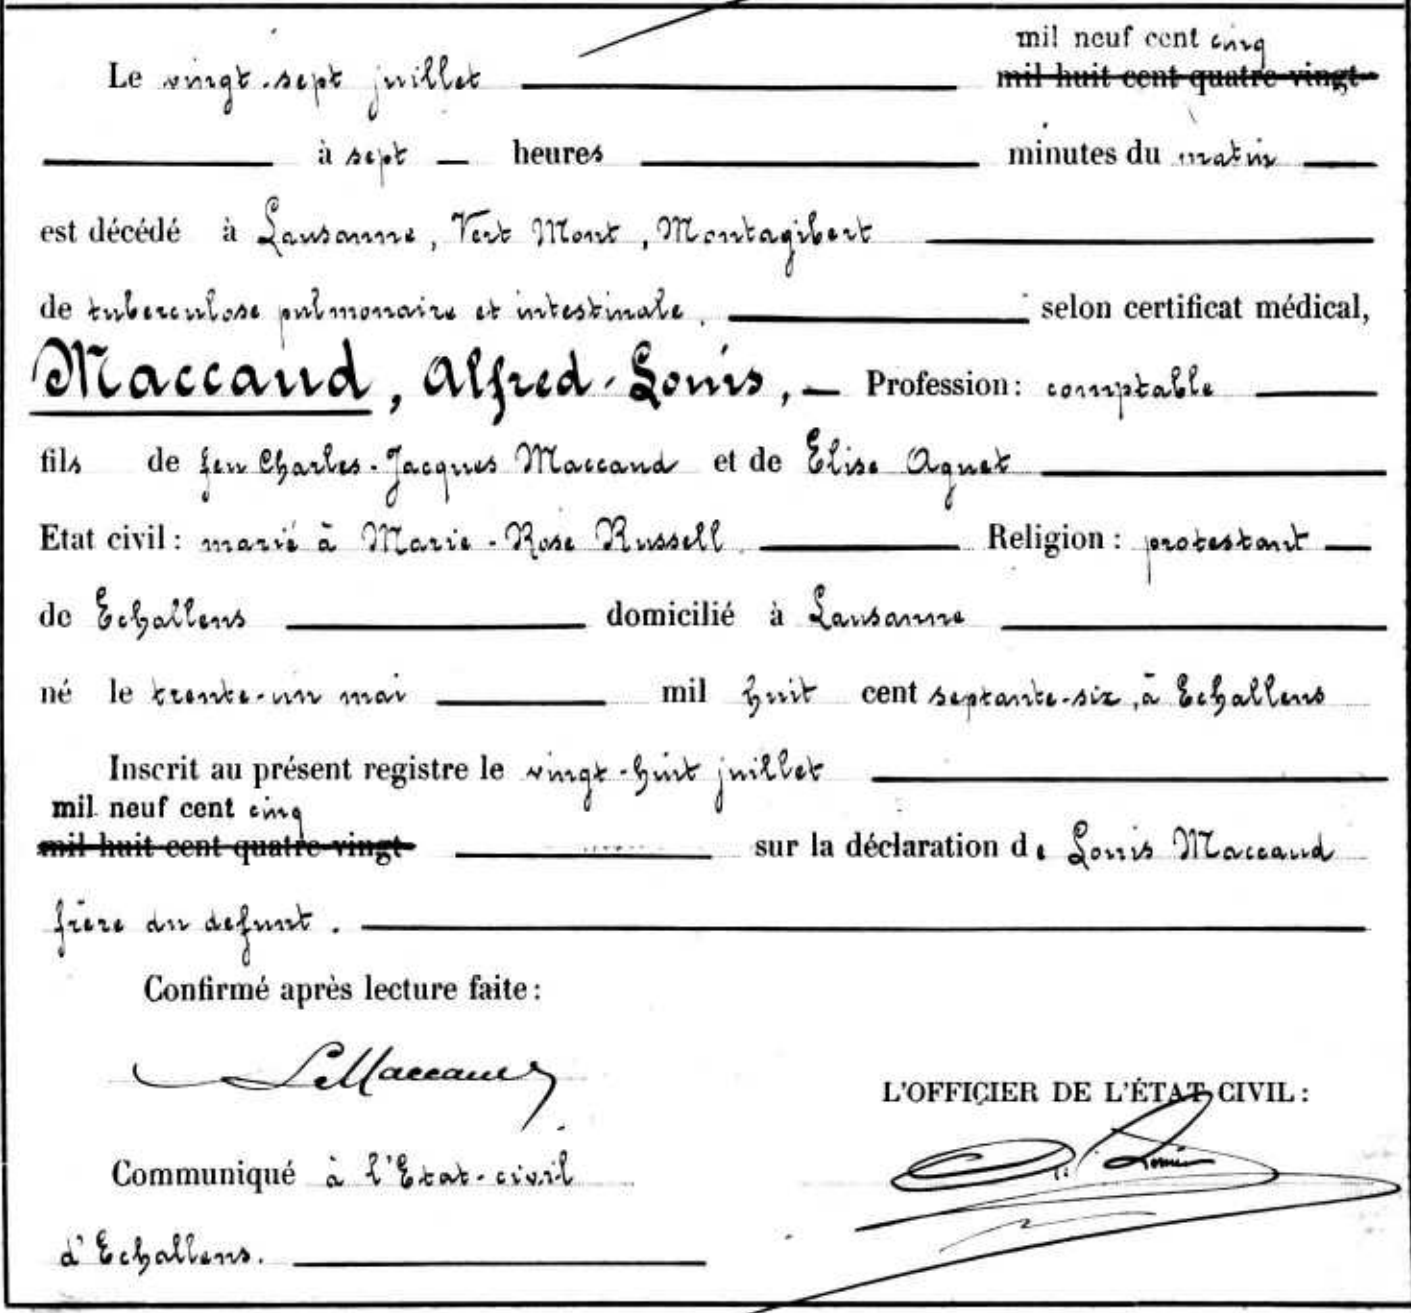 mil neuf cent cinq
Le vingt-sept juillet mil huit cent quatre-vingt-
à sept heures minutes du matin
est décédé à Lausanne, Vert Mont, Montagibert
de tuberculose pulmonaire et intestinale, selon certificat médical,
Maccaud, Alfred-Louis, Profession: comptable
fils de feu Charles-Jacques Maccaud et de Elise Aguet
Etat civil: marié à Marie-Rose Russell Religion: protestant
de Echallens domicilié à Lausanne
né le trente-un mai mil huit cent septante-six, à Echallens
Inscrit au présent registre le vingt-huit juillet
mil neuf cent cinq
mil huit cent quatre-vingt- sur la déclaration de Louis Maccaud
frère du defunt.
Confirmé après lecture faite:
Ls Maccaud
L'OFFICIER DE L'ÉTAT CIVIL:
Communiqué à l'Etat-civil
d'Echallens.